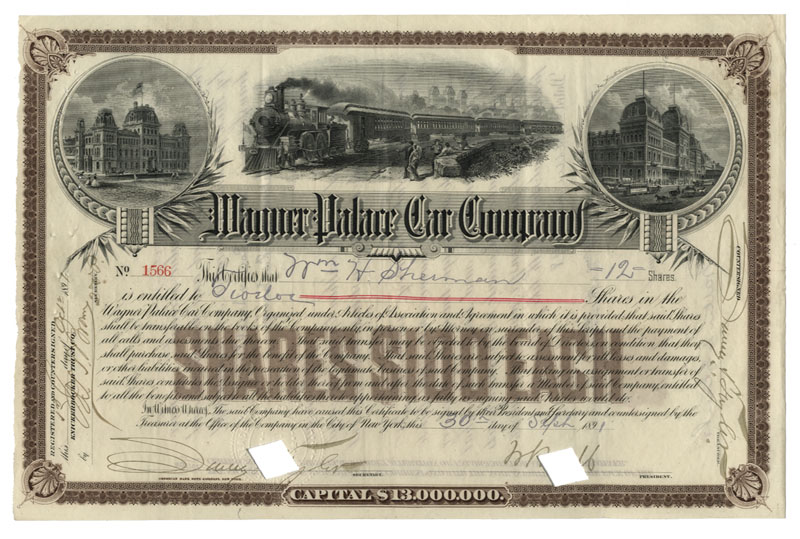 Wagner Palace Car Company
No 1566 This Certifies that Wm H. Sherman -12- Shares.
is entitled to Twelve Shares in the
Wagner Palace Car Company, Organized under Articles of Association and Agreement in which it is provided that said Shares
shall be transferable on the books of the Company only in person or by Attorney on surrender of this
and the payment of
all calls and assessments due thereon. That said transfer may be rejected by the board of Directors on condition that they
shall purchase said Shares for the benefit of the Company. That said Shares are subject to assessment for all losses and damages,
or other liabilities incurred in the prosecution of the legitimate business of said Company. That taking an assignment or transfer of
said Shares constitutes the Assignee or holder thereof from and after the date of such transfer a Member of said Company, entitled
to all the benefits and subject to all the liabilities thereto appertaining as fully as signing said Articles would be.
In Witness Whereof, The said Company have caused this Certificate to be signed by their President and Secretary and countersigned by the
Treasurer at the Office of the Company in the City of New York, this 30th day of Sept 1891
SECRETARY.
PRESIDENT.
AMERICAN BANK NOTE COMPANY, NEW YORK.
CAPITAL $13,000,000.
REGISTERED AND COUNTERSIGNED
this day of 189
KNICKERBOCKER TRUST CO.
by
COUNTERSIGNED